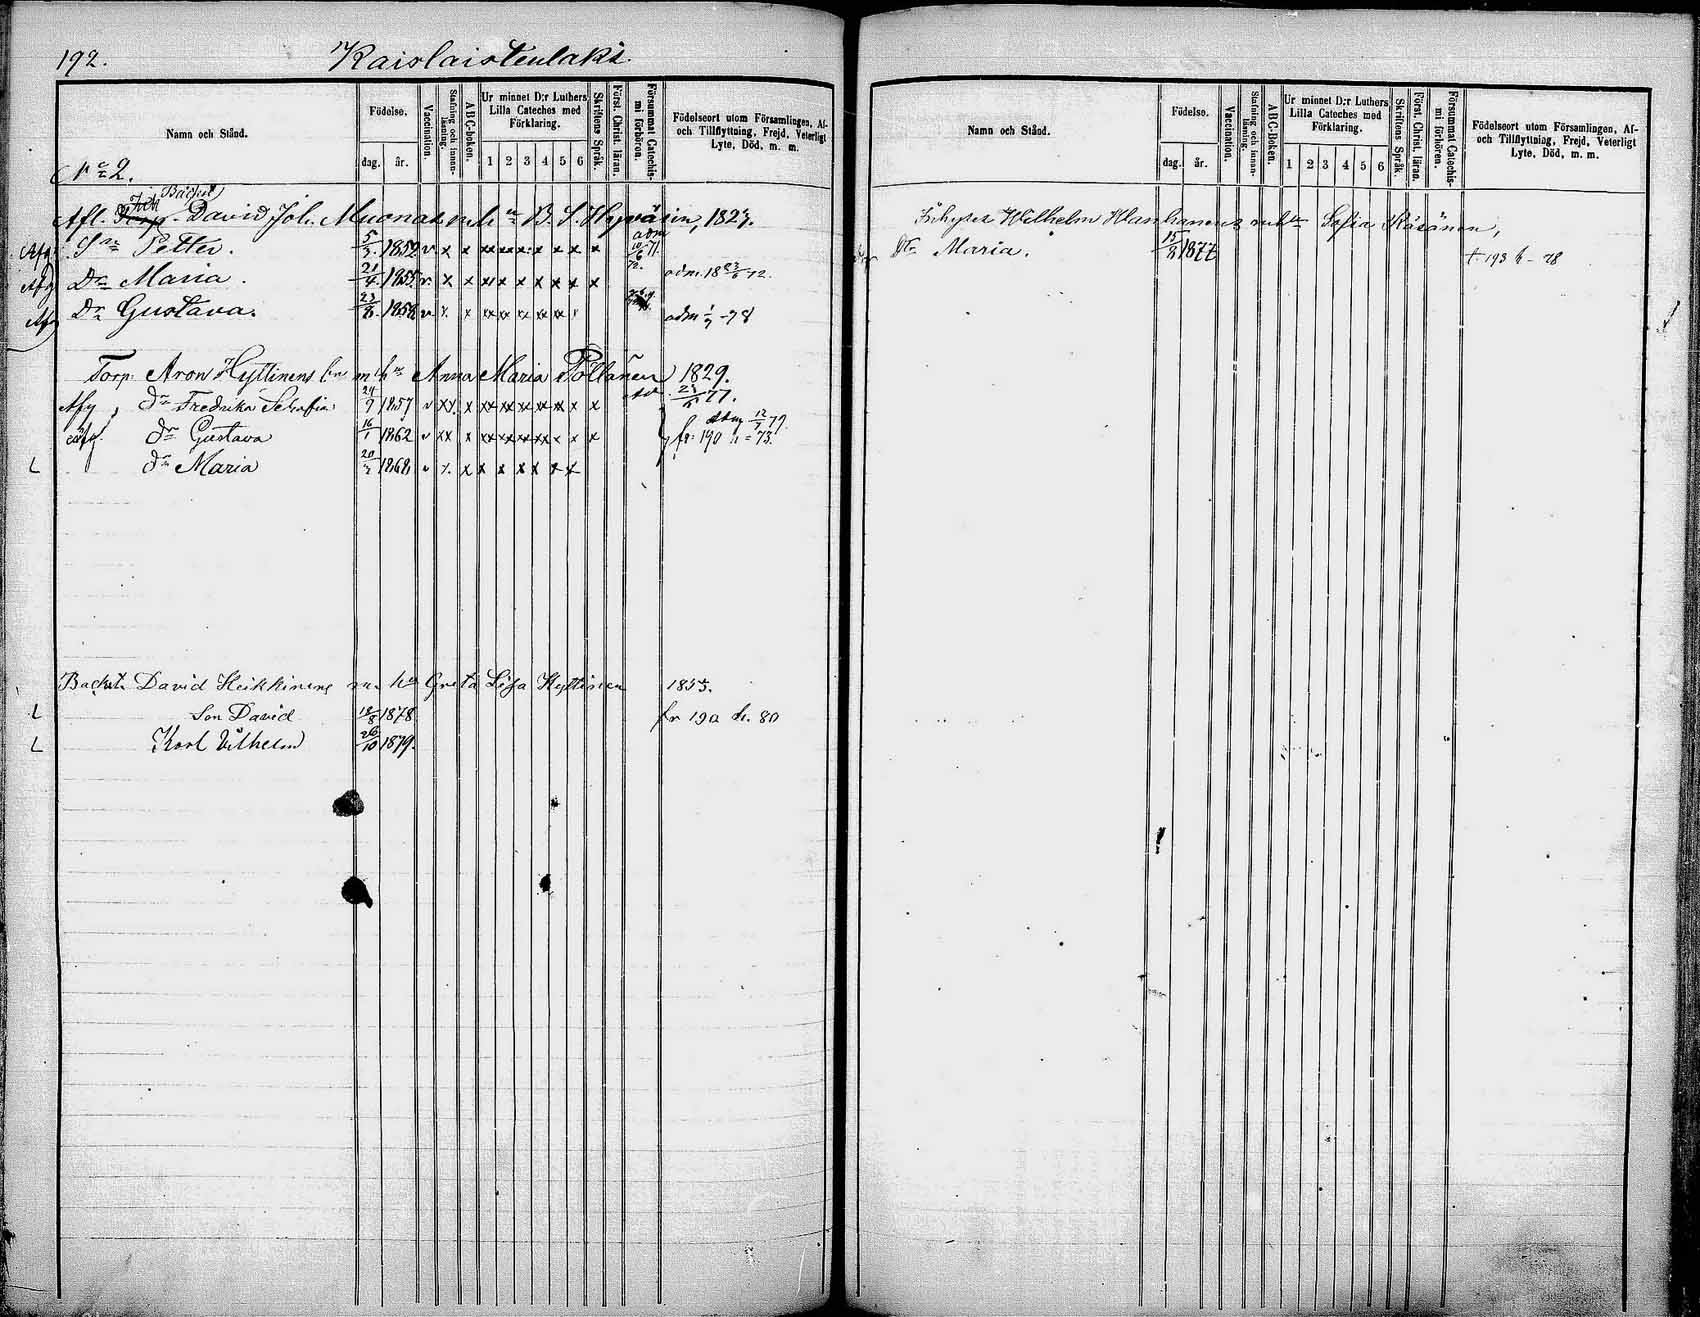 192. Kaislaistenlaks.
Namn och Stånd.
Födelse.
dag. år.
Vaccination.
Stafning och innanläsning.
ABC-boken.
Ur minnet D:r Luthers Lilla Cateches med Förklaring.
1 2 3 4 5 6
Skriftens Språk.
Först. Christ. läran.
Försummat Catechismi förhören.
Födelseort utom Församlingen, Af- och Tillflyttning, Frejd, Veterligt Lyte, Död, m. m.
N:o 2.
Bäckst
Afl. Torp. David Joh. Muonas m. h:u B. S. Hyvärin, 1823.
Afg S:n Petter. 5/3. 1852 v x x xx xx x x x x x adm 10/6 71.
Afg D:r Maria. 21/4 1855. v. x x x x x x x x x 72. adm. 18 23/6 72.
Afg D:r Gustava. 1858 v x. x xx xx x xx x x adm 1/7 -78
Torp. Aron Hyttinens m h:u Anna Maria Pöllänen 1829.
Afg, d:r Fredrika Serafia 24/9 1857 v xx x xx xx xx xx xx x x 77.
afg. d:r Gustava 16/1 1862 v xx x xx xx xx xx x x x adm 12/7 79.
fr: 190 h = 73.
L d:r Maria 20/3 1868 v x. x x x x x x x
Backst. David Heikkinens m. h:u Greta Lisa Hyttinen 1855.
L Son David 18/8 1878 fr 190 h. 80
L Karl Vilhelm 26/10 1879.
Namn och Stånd.
Födelse.
dag. år.
Vaccination.
Stafning och innanläsning.
ABC-boken.
Ur minnet D:r Luthers Lilla Cateches med Förklaring.
1 2 3 4 5 6
Skriftens Språk.
Först. Christ. läran.
Försummat Catechismi förhören.
Födelseort utom Församlingen, Af- och Tillflyttning, Frejd, Veterligt Lyte, Död, m. m.
Inhyses Wilhelm m h:u Sofia Räsänen,
D:r Maria. 1877 t. 193 h - 78